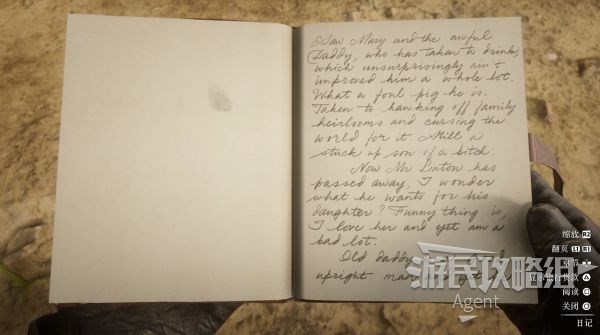 Saw Mary and the awful
Daddy, who has taken to drink
which unsurprisingly ain't
improved him a whole lot.
What a foul pig he is.
Taken to hawking off family
heirlooms and cursing the
world for it. Still a
stuck up son of a bitch.
Now Mr Linton has
passed away, I wonder
what he wants for his
daughter? Funny thing is,
I love her and yet am a
bad lot.
Old daddy
upright man
游民攻略组
Agent
缩放 R2
翻页 L1 R1
阅读
关闭
日记